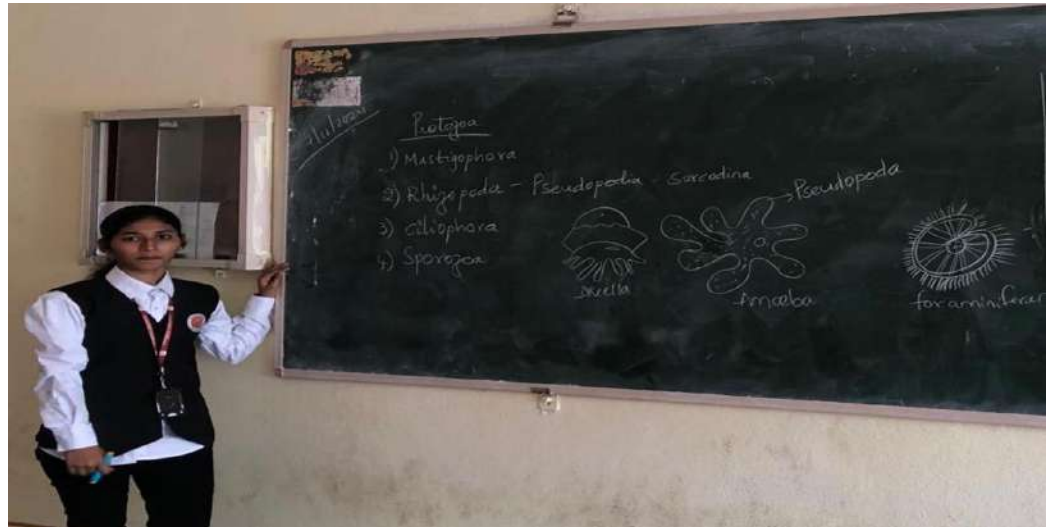 Protozoa
1) Mastigophora
2) Rhizopoda - Pseudopodia - Sarcodina
3) Ciliophora
4) Sporozoa
Pseudopoda
Amoeba
foraminifera